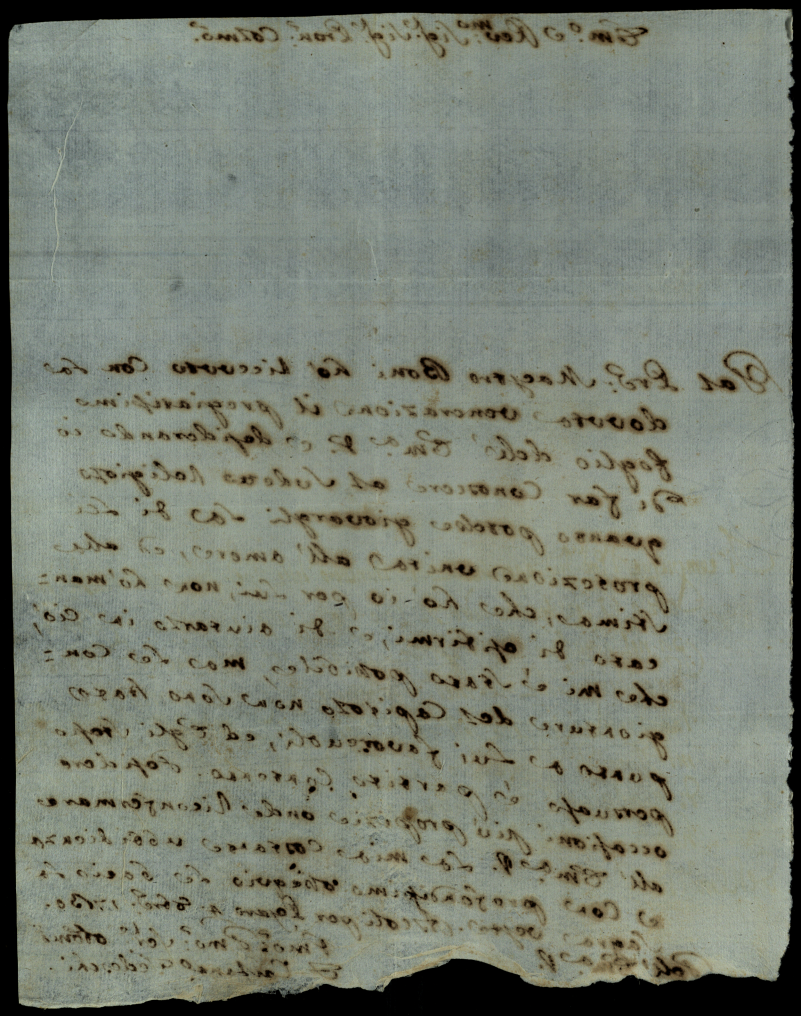 Em.º e Rev.mo Sig.r Sig.r Pron. Colmo.
Dal Pre. Maestro Boni hò ricevuto con la
dovuta venerazione il pregiatissimo
foglio dell' Em.a V. e desiderando io
di far conoscere al sudetto Religioso
quanto possa giovargli la di Lei
protezione unita all' amore, ed alla
stima, che hò io per lui, non hò man=
cato di assistirmi, e di aiutarlo in ciò,
che mi è stato possibile, ma le con=
gionture del Capitolo non sono state
punto a Lui favorevoli, ed Egli stesso
persuaso è partito contento. Desidero
occasioni più propizie onde riconfermare
all' Em.a V. la mia costante ubbidienza
e con profondissimo ossequio le bacio la
sagra veste. Ascoli per Lugano 4. 1730.
Dell' Em.a V.